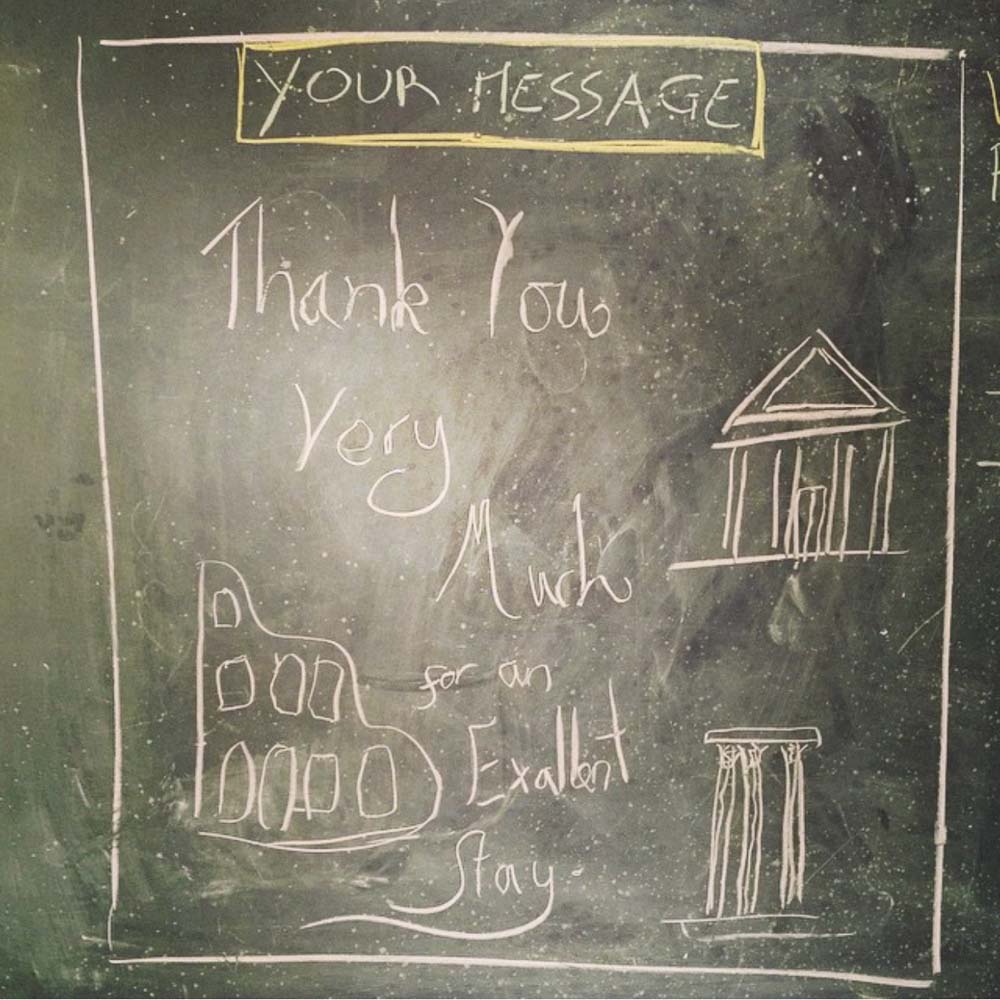 YOUR MESSAGE
Thank You
Very
Much
for an
Exallent
Stay.